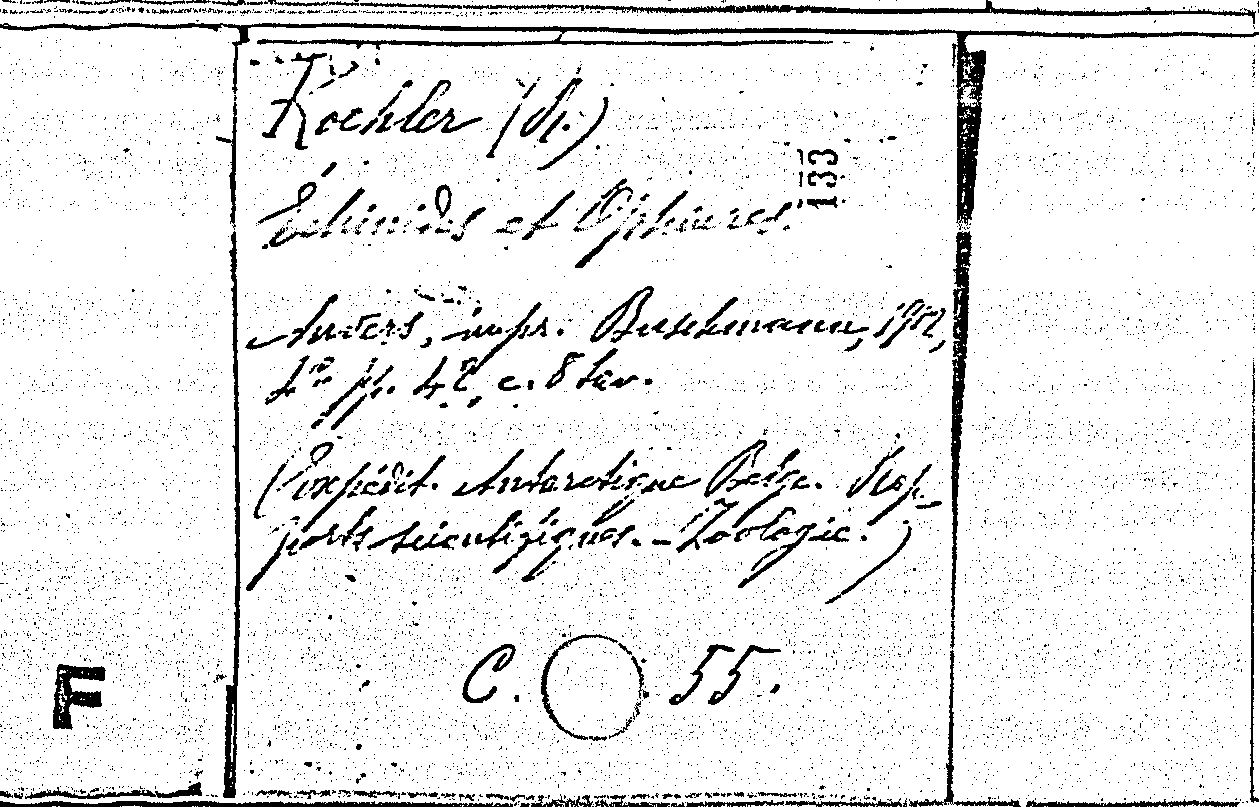 Koehler (R.)
133
Échinides et Ophiures.
Anvers, impr. Buschmann, 1902,
4° pp. 42, c. 8 tav.
(Expédit. Antarctique Belge. Rap-
ports scientifiques. - Zoologie.)
C. 55.
F